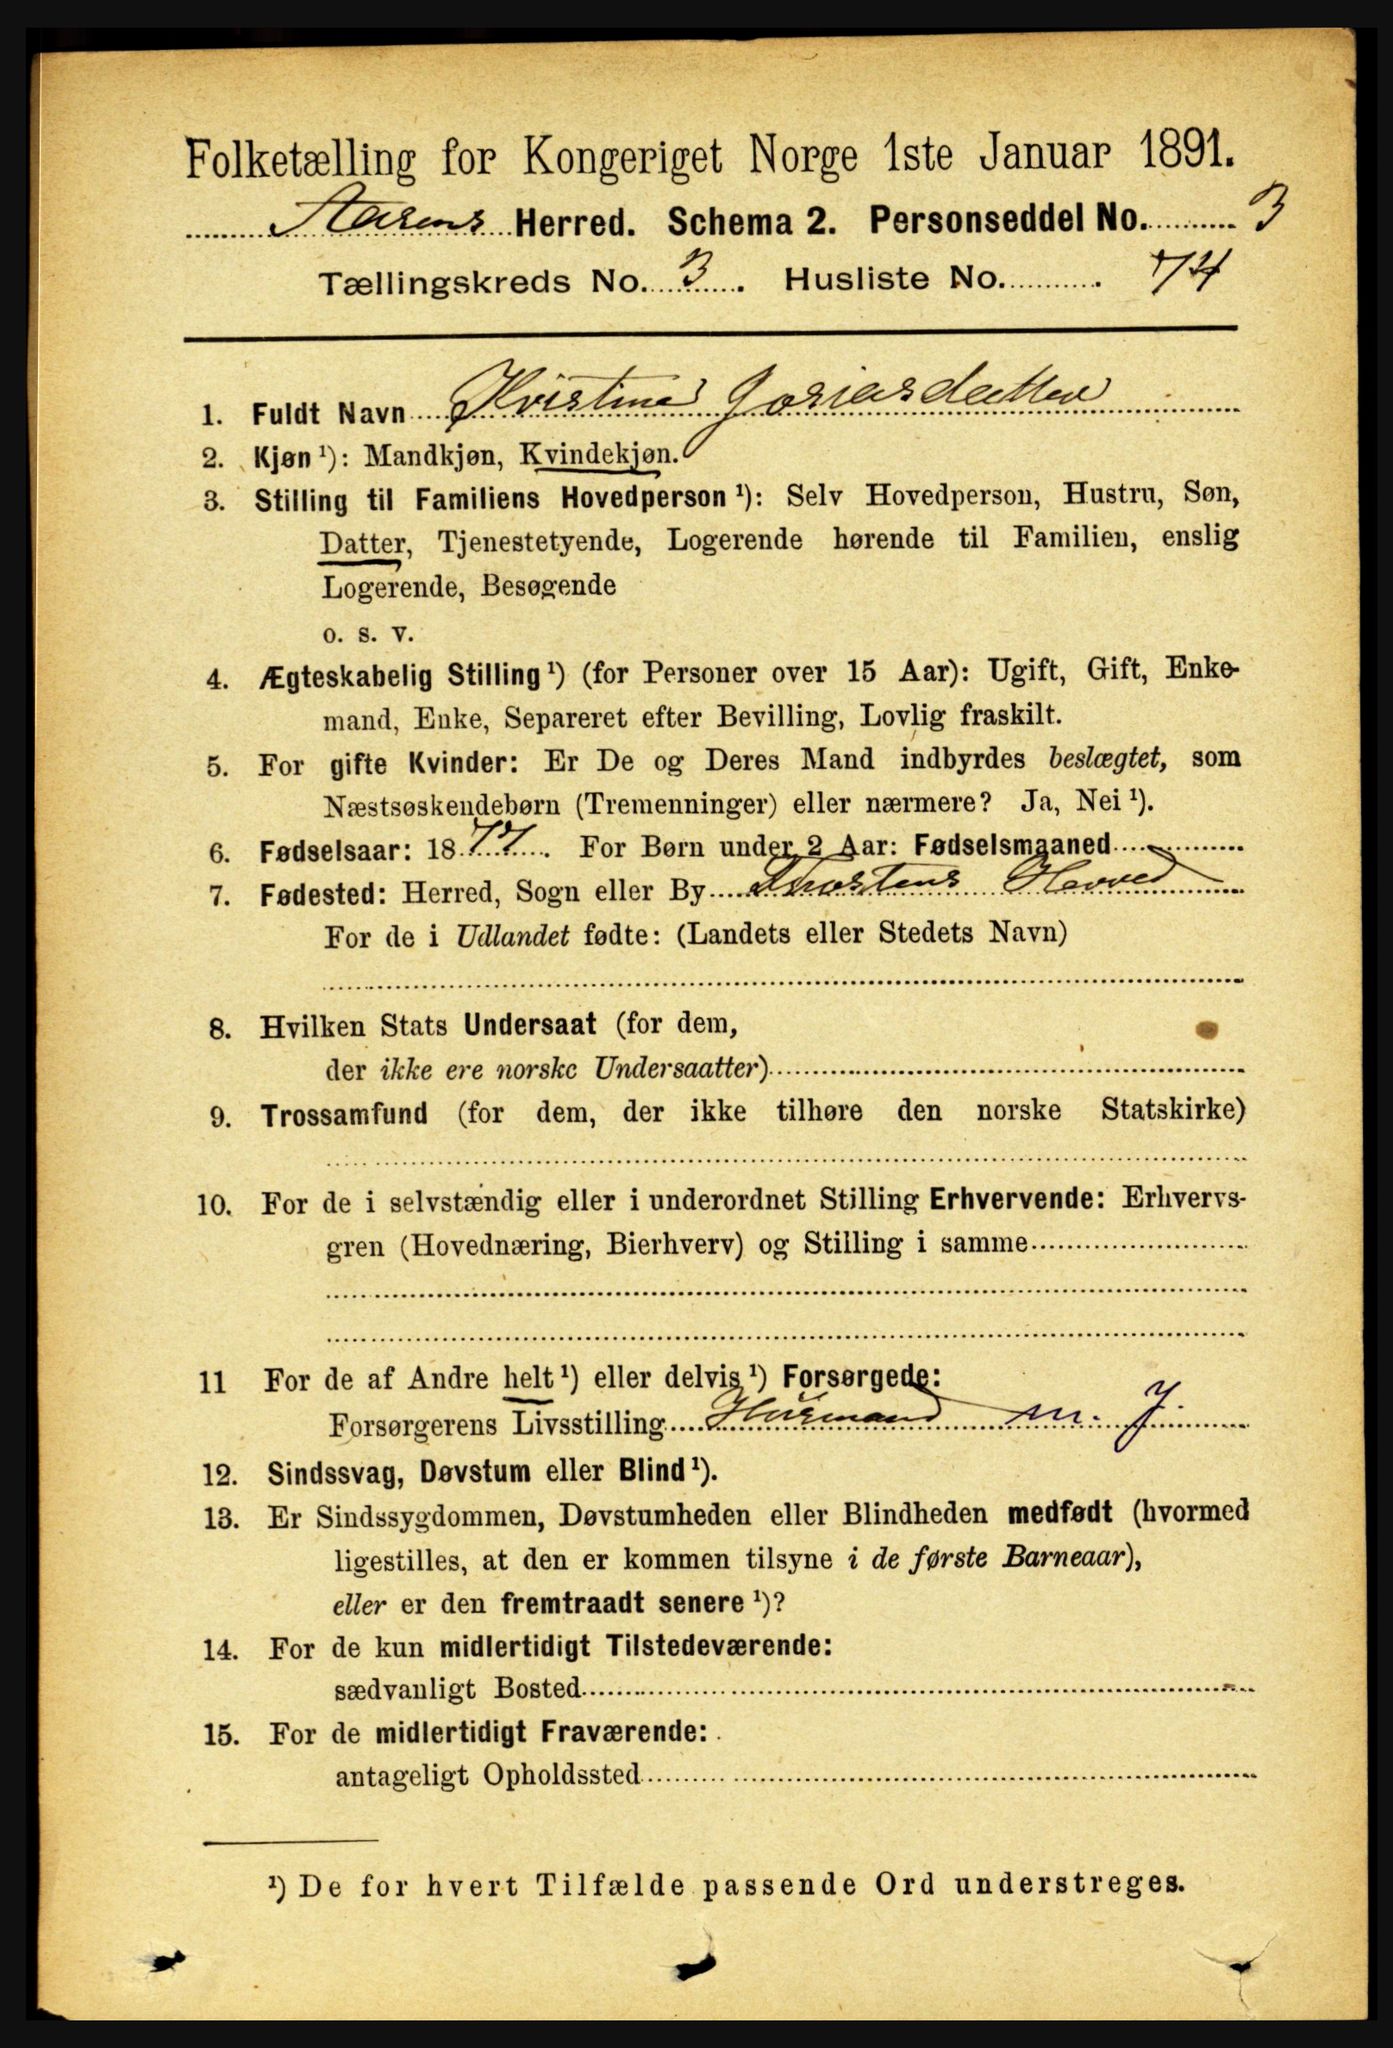 Folketælling for Kongeriget Norge 1ste Januar 1891.
Aasens Herred. Schema 2. Personseddel No. 3
Tællingskreds No. 3. Husliste No. 74
1. Fuldt Navn Kristine Josiasdatter
2. Kjøn ¹): Mandkjøn, Kvindekjøn.
3. Stilling til Familiens Hovedperson ¹): Selv Hovedperson, Hustru, Søn,
Datter, Tjenestetyende, Logerende hørende til Familien, enslig
Logerende, Besøgende
o. s. v.
4. Ægteskabelig Stilling ¹) (for Personer over 15 Aar): Ugift, Gift, Enke-
mand, Enke, Separeret efter Bevilling, Lovlig fraskilt.
5. For gifte Kvinder: Er De og Deres Mand indbyrdes beslægtet, som
Næstsøskendebørn (Tremenninger) eller nærmere? Ja, Nei ¹).
6. Fødselsaar: 1877. For Børn under 2 Aar: Fødselsmaaned
7. Fødested: Herred, Sogn eller By Frostens Herred
For de i Udlandet fødte: (Landets eller Stedets Navn)
8. Hvilken Stats Undersaat (for dem,
der ikke ere norske Undersaatter)
9. Trossamfund (for dem, der ikke tilhøre den norske Statskirke)
10. For de i selvstændig eller i underordnet Stilling Erhvervende: Erhvervs-
gren (Hovednæring, Bierhverv) og Stilling i samme
11 For de af Andre helt ¹) eller delvis ¹) Forsørgede:
Forsørgerens Livsstilling Husmand m. J.
12. Sindssvag, Døvstum eller Blind ¹).
13. Er Sindssygdommen, Døvstumheden eller Blindheden medfødt (hvormed
ligestilles, at den er kommen tilsyne i de første Barneaar),
eller er den fremtraadt senere ¹)?
14. For de kun midlertidigt Tilstedeværende:
sædvanligt Bosted
15. For de midlertidigt Fraværende:
antageligt Opholdssted
¹) De for hvert Tilfælde passende Ord understreges.